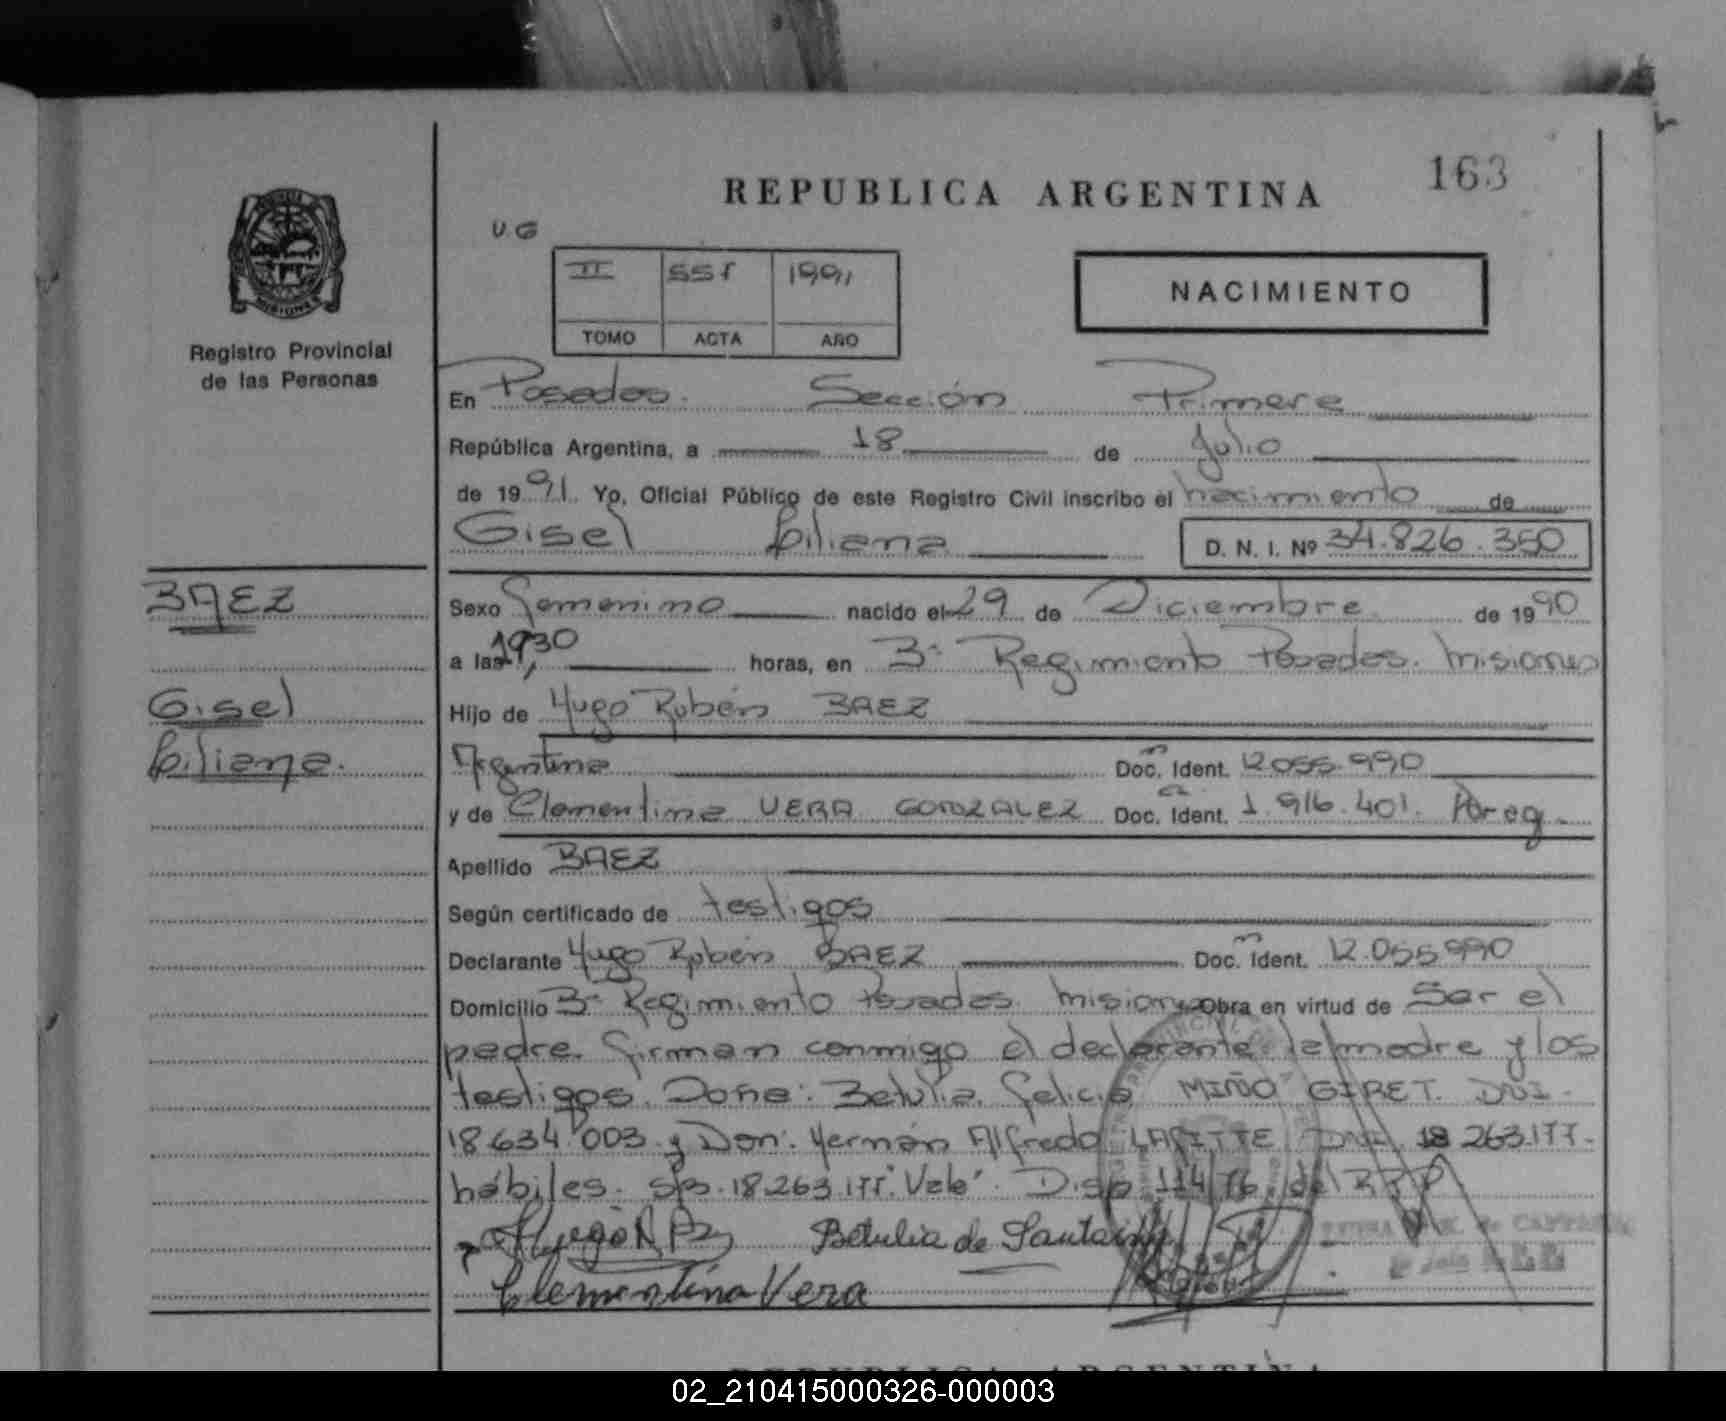 163
REPUBLICA ARGENTINA
U.G
II 555 1991
TOMO ACTA AÑO
NACIMIENTO
MISIONES
Registro Provincial
de las Personas
En Posadas. Sección Primera
República Argentina, a 18 de Julio
de 1991. Yo, Oficial Público de este Registro Civil inscribo el nacimiento de
Gisel Liliana D. N. I. Nº 34.826.350
BAEZ
Gisel
Liliana.
Sexo femenino nacido el 29 de Diciembre de 1990
a las 1930 horas, en 3º Regimiento Posadas. Misiones
Hijo de Hugo Rubén BAEZ
Argentina Doc. Ident. 12.055.990
y de Clementina VERA GONZALEZ Doc. Ident. 1.916.401. Parag.
Apellido BAEZ
Según certificado de testigos
Declarante Hugo Rubén BAEZ Doc. Ident. 12.055990
Domicilio 3º Regimiento Posadas. Misiones Obra en virtud de Ser el
padre. firman conmigo el declarante la madre y los
testigos. Doña: Betulia. felicia MIÑO GIRET. DNI.
18.634.003. y Don: Hernán Alfredo LAFITTE DNI. 18 263.177.
hábiles. S/B. 18.263.177. "Vale". Disp. 114/76 del R.P.P.
Hugo R. Bz Betulia de
Clementina Vera
REPUBLICA ARGENTINA
02_210415000326-000003